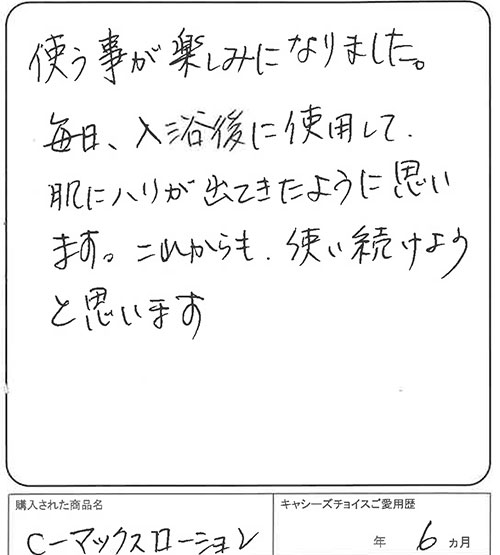 使う事が楽しみになりました。
毎日、入浴後に使用して、
肌にハリが出てきたように思い
ます。これからも、使い続けよう
と思います
購入された商品名
キャシーズチョイスご愛用歴
Cーマックスローション
年 6 ヵ月